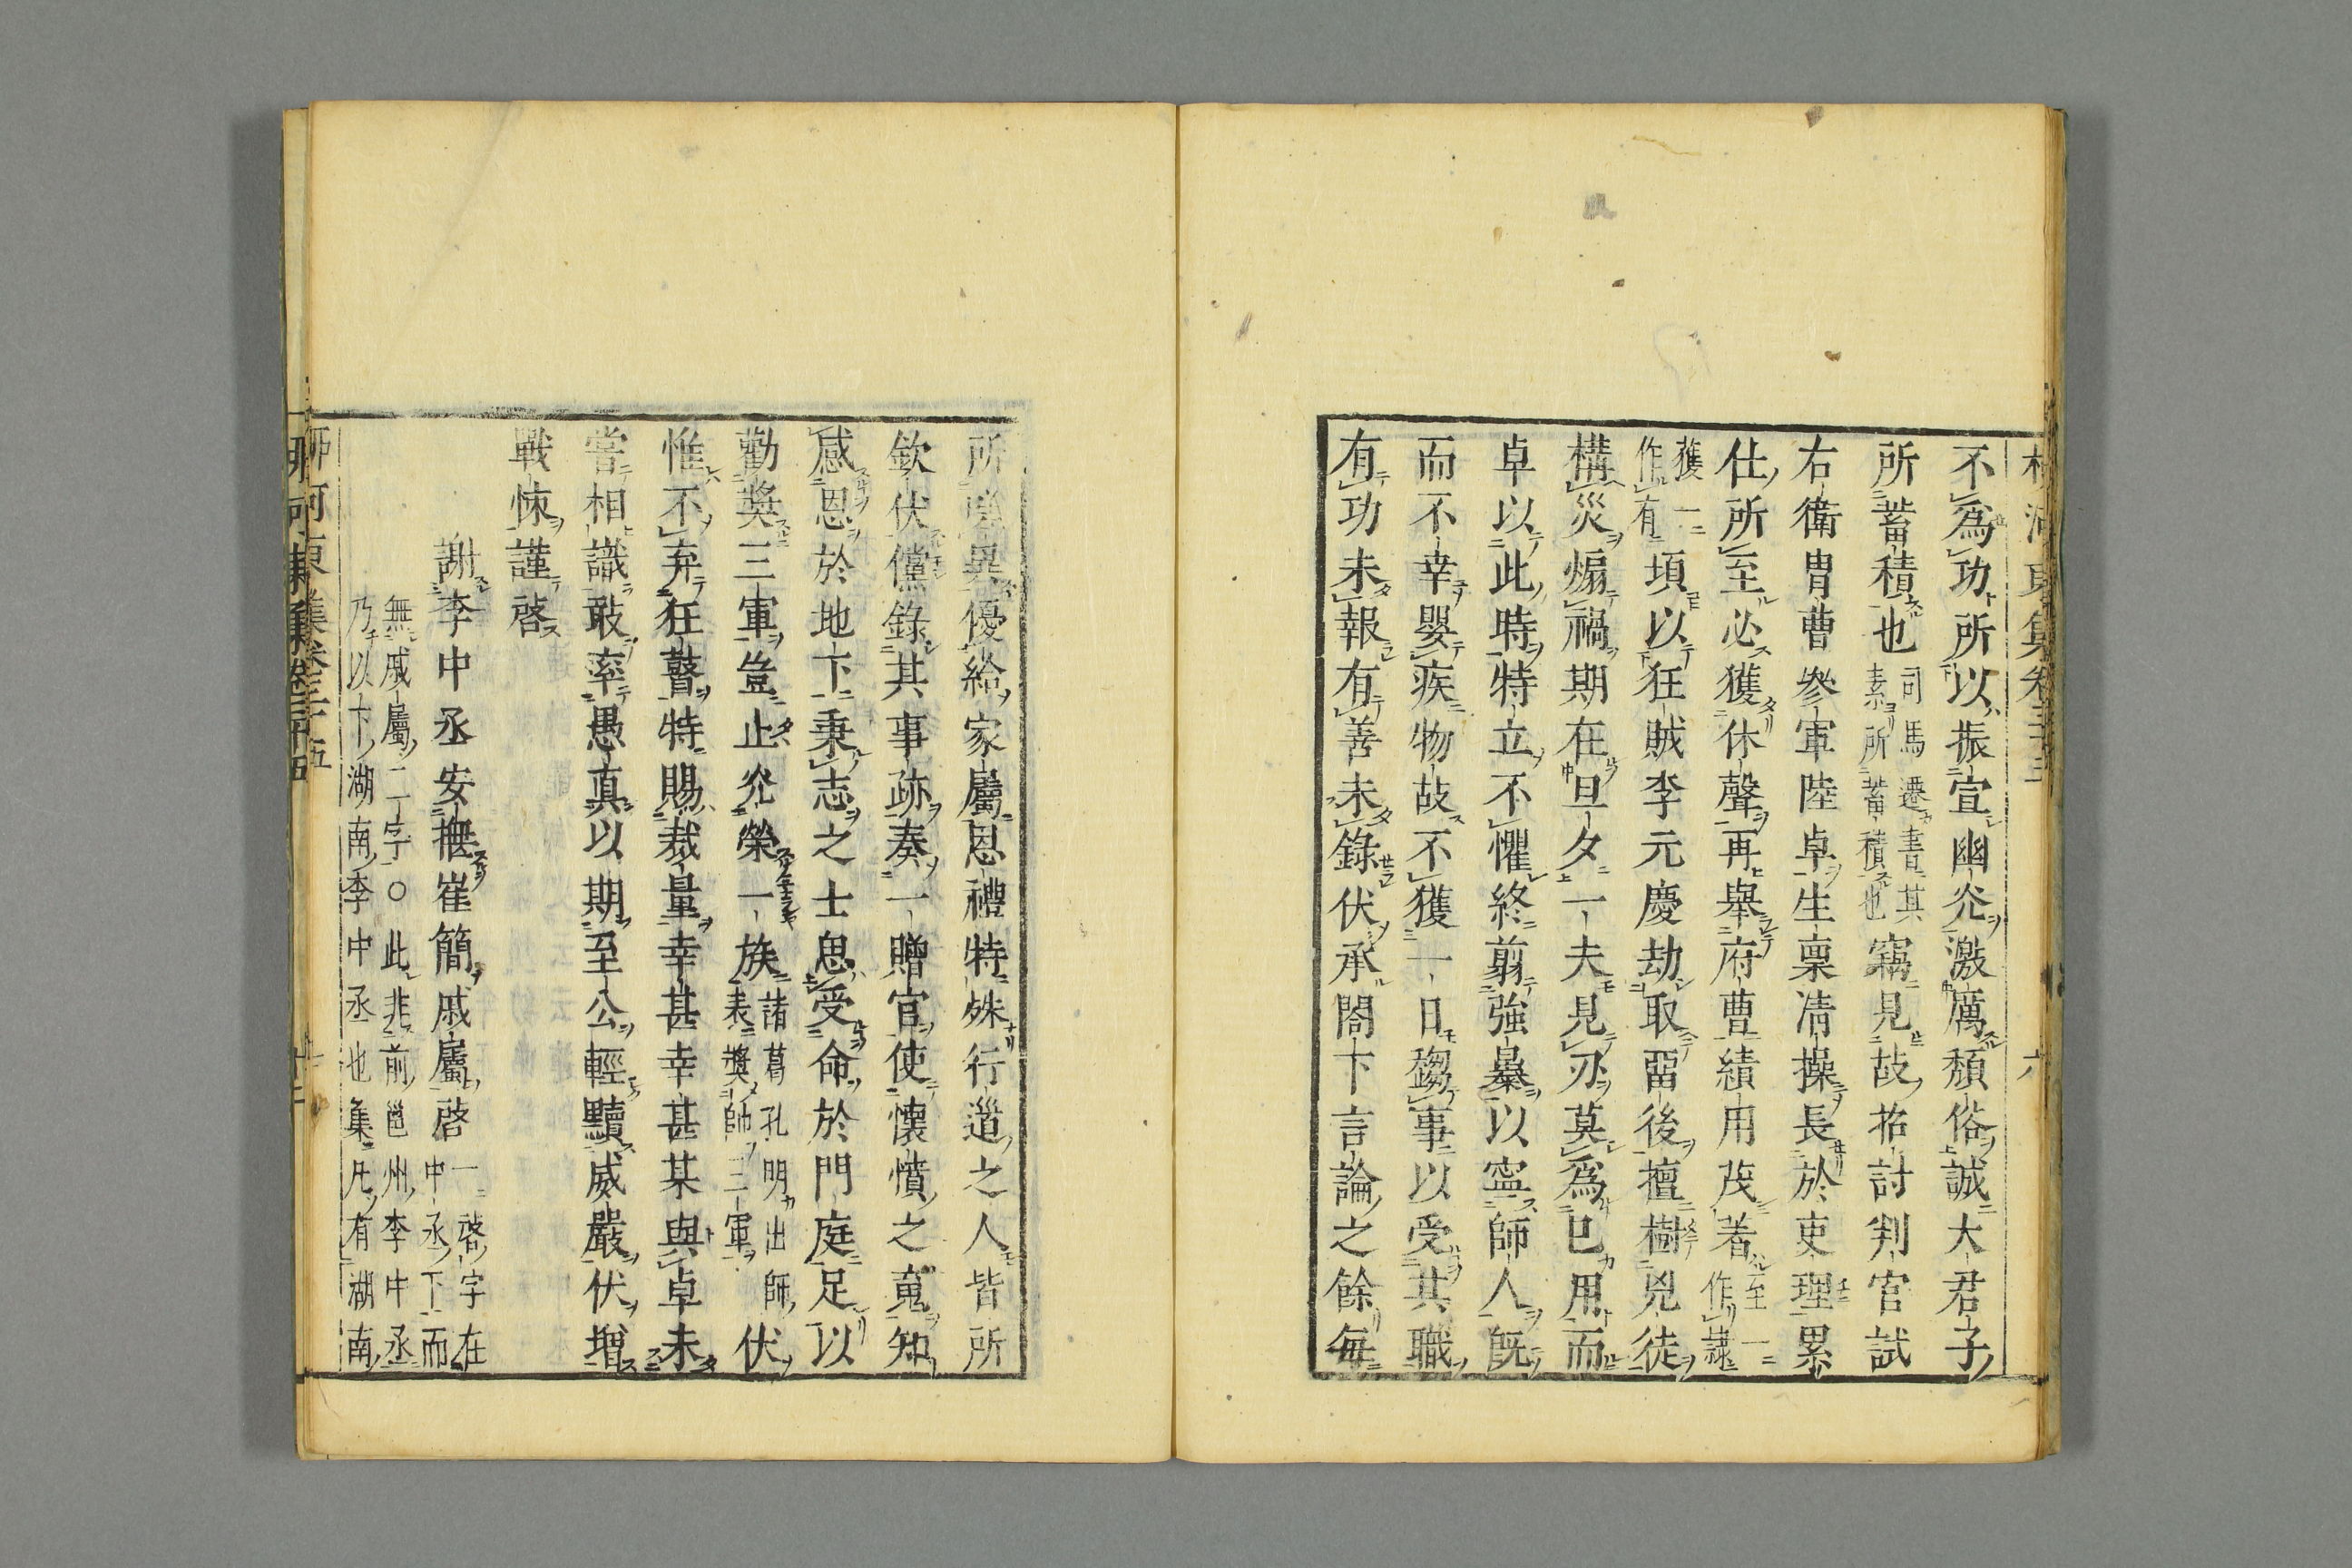 不爲功所以振宣幽允激厲頹俗誠大君子
所蓄積也司馬遷書其素所蓄積也竊見故招討判官試
右衛胄曹參軍陸卓生稟淸操長於吏理累
仕所至必獲休聲再舉府曹績用茂著至一作隷
獲一作有頃以狂賊李元慶劫取留後擅樹兇徒
構災煽禍期在旦夕一夫見刃莫爲已用而
卓以此時特立不懼終翦強暴以寧師人旣
而不幸嬰疾物故不獲一日酬事以受其職
有功未報有善未錄伏承閤下言論之餘每
所嗟異優給家屬恩禮特殊行道之人皆所
欽伏儻錄其事跡奏一贈官使懷憤之䰟知
感恩於地下秉志之士思受命於門庭足以
勸奬三軍豈止允榮一族諸葛孔明出師表奬帥三軍伏
惟不弃狂瞽特賜裁量幸甚幸甚某與卓未
嘗相識敢率愚真以期至公輕黷威嚴伏增
戰悚謹啓
謝李中丞安撫崔簡戚屬啓一啓字在中丞下而
無戚屬二字○此非前邕州李中丞
乃以下湖南李中丞也集凡有湖南
柳河東集卷三十五